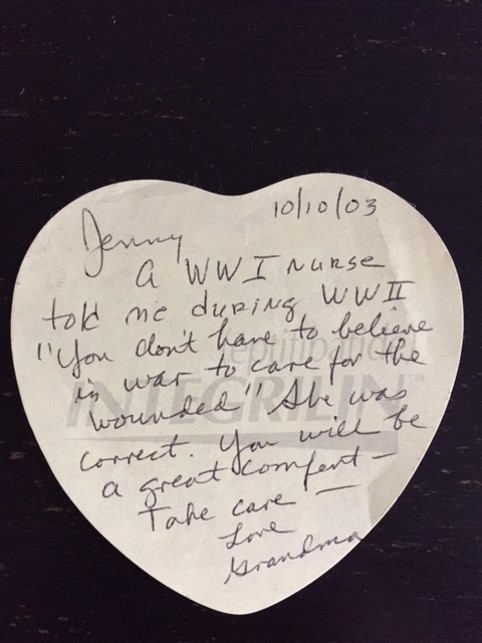 10/10/03
Jenny
A WWI nurse
told me during WWII
"You don't have to believe
in war to care for the
wounded" She was
correct. You will be
a great comfort —
Take care —
Love
Grandma
(eptifibatide)
INTEGRILIN™